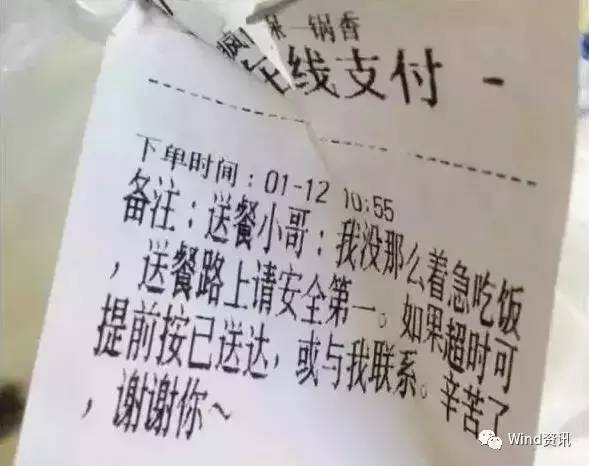 疯！
一锅香
在线支付 -
下单时间：01-12 10:55
备注：送餐小哥：我没那么着急吃饭
，送餐路上请安全第一。如果超时可
提前按已送达，或与我联系。辛苦了
，谢谢你～
Wind资讯